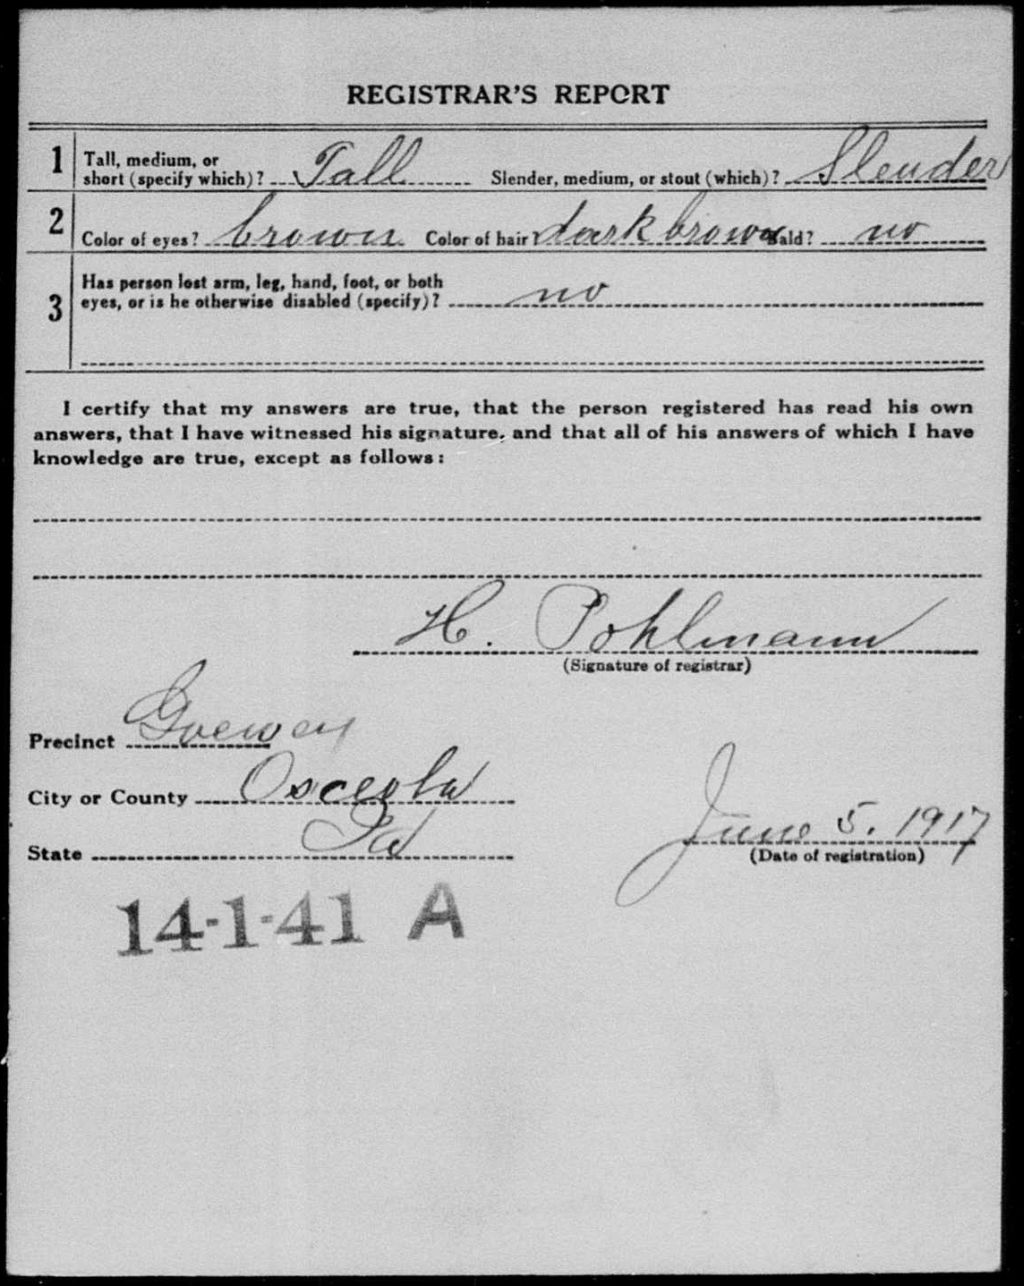 REGISTRAR'S REPORT
1 Tall, medium, or
short (specify which)? Tall Slender, medium, or stout (which)? Slender
2 Color of eyes? brown Color of hair dark brown Bald? no
Has person lost arm, leg, hand, foot, or both
3 eyes, or is he otherwise disabled (specify)? no
I certify that my answers are true, that the person registered has read his own
answers, that I have witnessed his signature, and that all of his answers of which I have
knowledge are true, except as follows:
H. Pohlmann
(Signature of registrar)
Precinct Goewey
City or County Osceola
State Ia
June 5. 1917
(Date of registration)
14-1-41 A